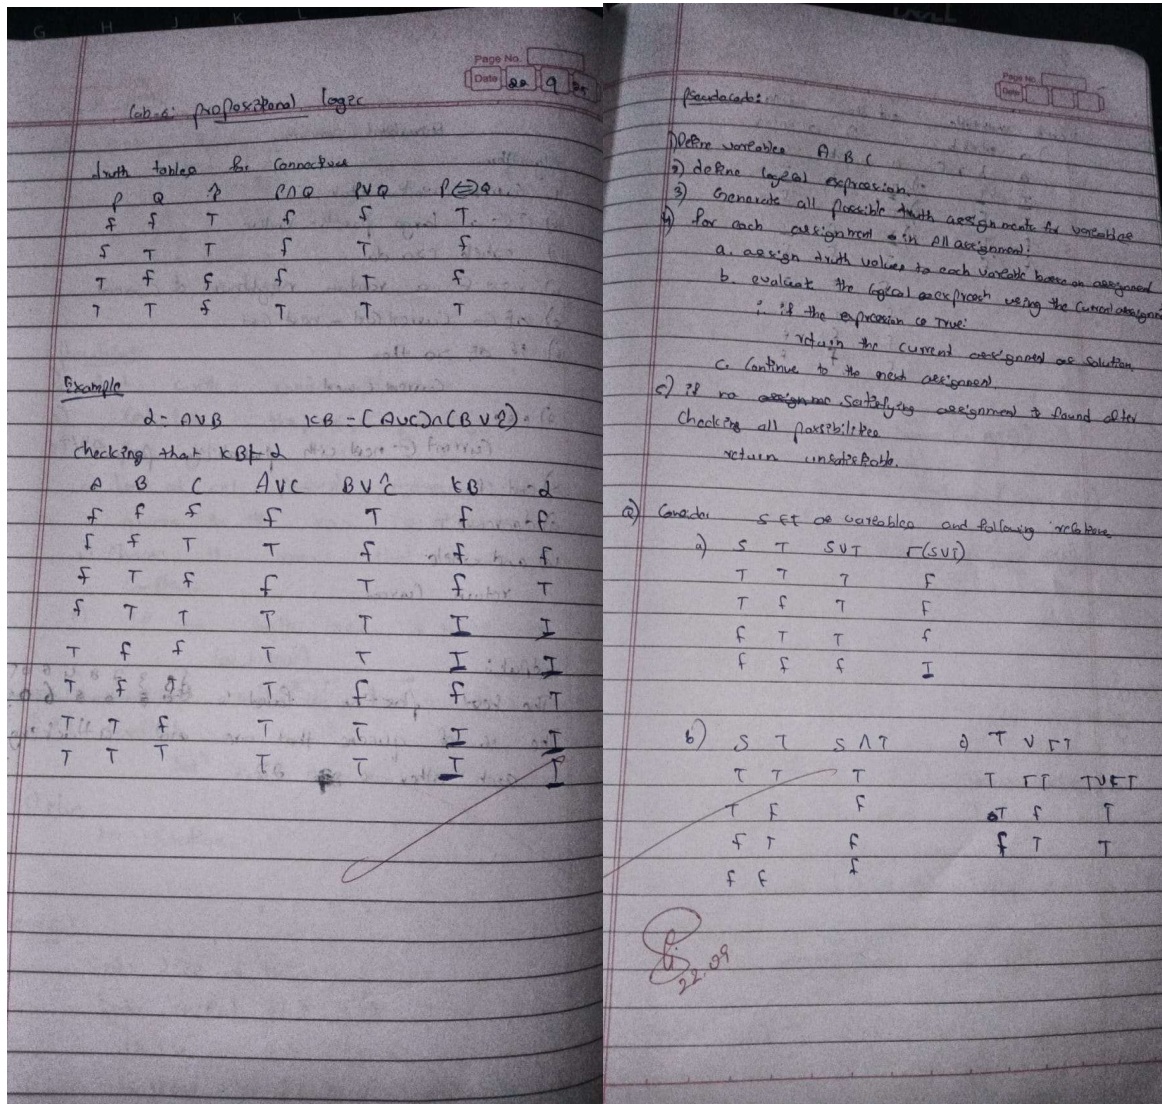 Page No.
Date 22 9 25
Lab-6: propositional logic
truth tables for Connective
P Q ?̂ P∩Q P∨Q P⇔Q
f f T f f T
f T T f T f
T f f f T f
T T f T T T
Example
α = A∨B KB = (A∨C)∩(B∨Ĉ)
checking that KB⊨α
A B C A∨C B∨Ĉ KB α
f f f f T f f
f f T T f f f
f T f f T f T
f T T T T I I
T f f T T I I
T f T T f f T
T T f T T I I
T T T T T I I
Page No.
Date
Pseudocode:
1) Define variables A B C
2) define logical expression.
3) Generate all possible truth assignments for variables
4) for each assignment in All assignment:
a. assign truth values to each variable base on assigned
b. evaluate the logical using the current assignm
i. if the expression is True:
return the current assigned as solution.
c. Continue to the next assignment.
5) if no satisfying assignment is found after
checking all possibilities
return unsatisfiable.
Q) Consider S & T as variables and following relations
a) S T S∨T ┌(S∨T)
T T T F
T f T F
f T T f
f f f I
b) S T S∧T c) T ∨ ┌T
T T T T ┌T T∨┌T
T f f T f T
f T f f T T
f f f
22.09